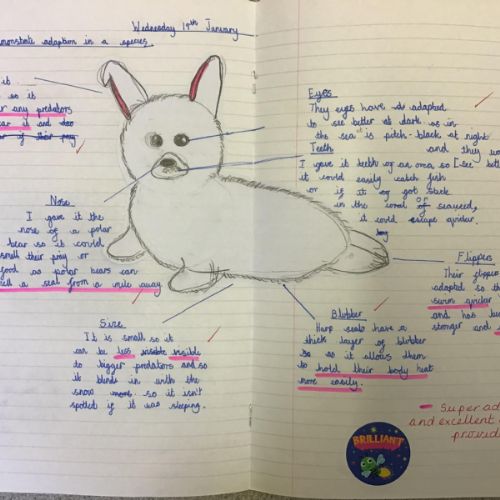 Wednesday 19th January
adaption in a species
it
so it
any predators
it and
of their prey
Nose
I gave it the
nose of a polar
bear so it could
smell their pray or
food as polar bears can
a seal from a mile away.
Size
It is small so it
can be less visible
to bigger predators and so
it blends in with the
snow so it isn't
spotted if it was sleeping.
Eyes
They eyes have adapted
to see better at dark as in
the sea it is pitch-black at night
and they
Teeth
I gave it teeth of an orca, so
it could easily catch fish
or if it got stuck
in the coral of seaweed,
it could escape quicker.
Flippers
Their flippers
adapted so
swim quicker
and has
stonger and
Blubber
Harp seals have a
thick layer of blubber
so as it allows them
to hold their body heat
more easily.
Super
and excellent
BRILLIANT